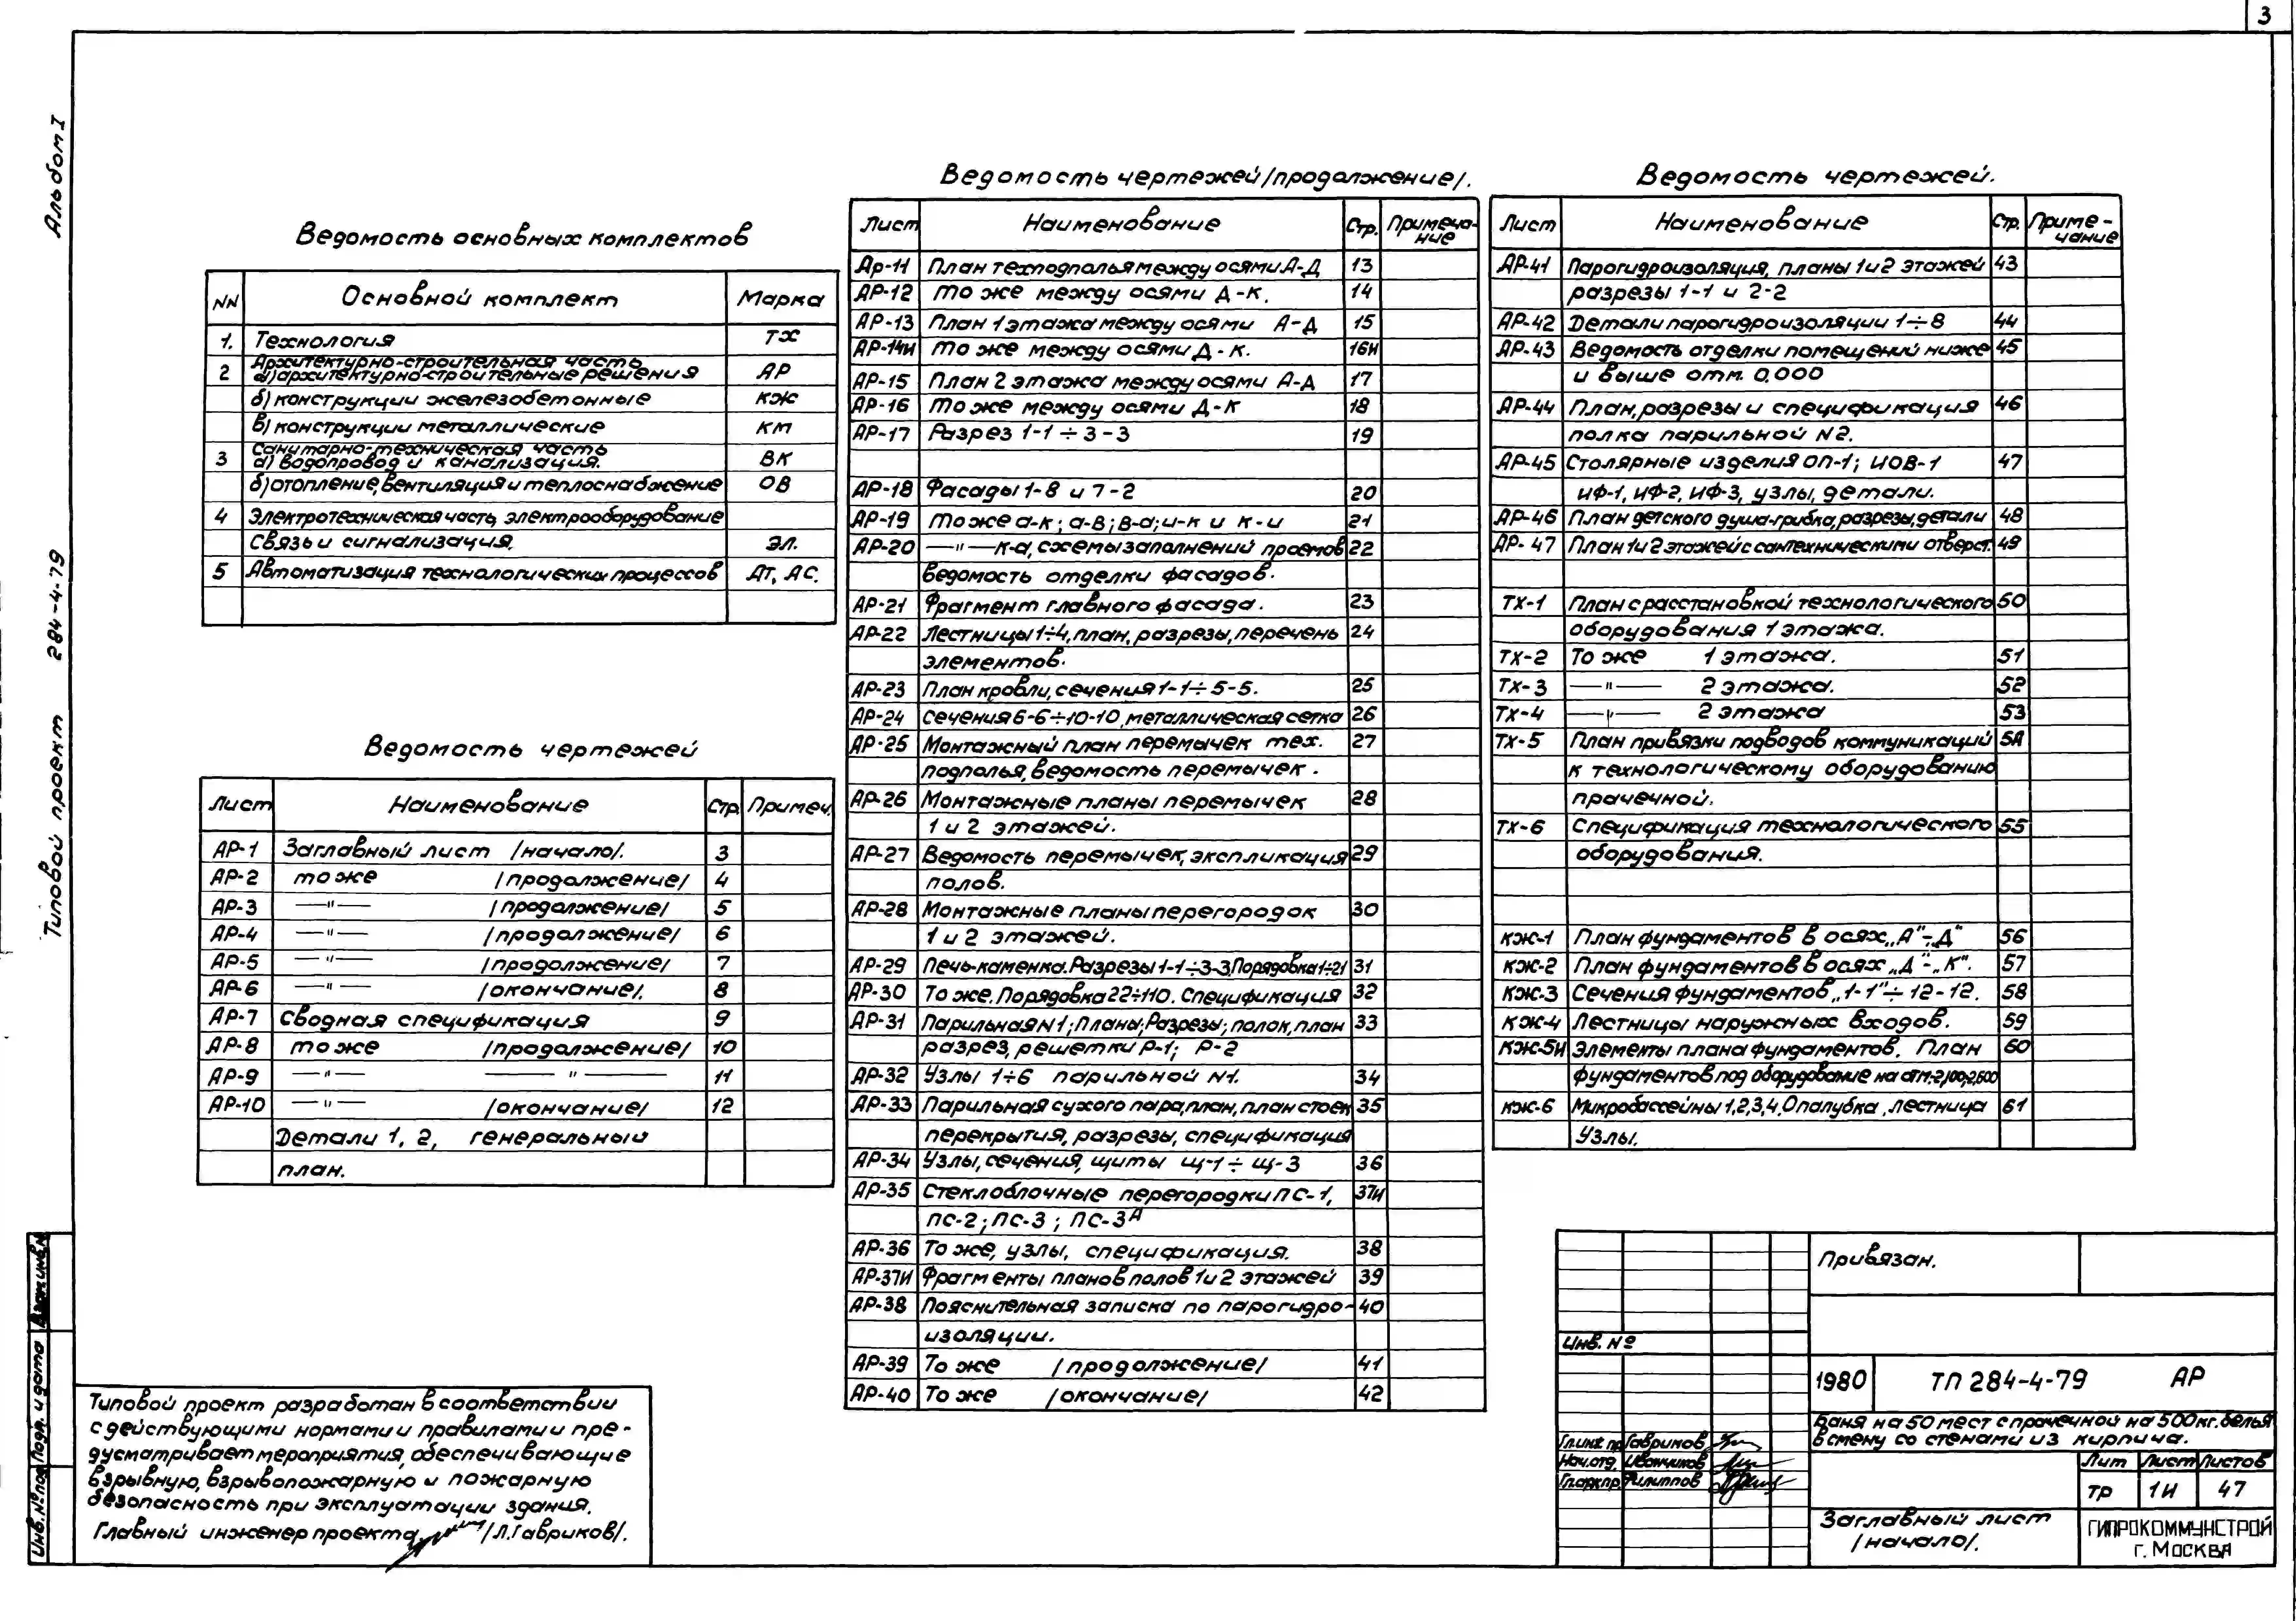 3
Альбом I
Типовой проект 284-4-79
Ведомость основных комплектов
NN Основной комплект Марка
1. Технология ТХ
2 Архитектурно-строительная часть
а) архитектурно-строительные решения АР
б) конструкции железобетонные КЖ
в) конструкции металлические КМ
3 Санитарно-техническая часть
а) водопровод и канализация. ВК
б) отопление, вентиляция и теплоснабжение ОВ
4 Электротехническая часть, электрооборудование
Связь и сигнализация. ЭЛ.
5 Автоматизация технологических процессов АТ, АС.
Ведомость чертежей
Лист Наименование Стр. Примеч.
АР-1 Заглавный лист /начало/. 3
АР-2 то же /продолжение/ 4
АР-3 —"— /продолжение/ 5
АР-4 —"— /продолжение/ 6
АР-5 —"— /продолжение/ 7
АР-6 —"— /окончание/. 8
АР-7 Сводная спецификация 9
АР-8 то же /продолжение/ 10
АР-9 —"— —"— 11
АР-10 —"— /окончание/ 12
Детали 1, 2, генеральный
план.
Ведомость чертежей /продолжение/.
Лист Наименование Стр. Примеча-
ние
Ар-11 План техподполья между осями А-Д 13
АР-12 то же между осями Д-К. 14
АР-13 План 1 этажа между осями А-Д 15
АР-14И то же между осями Д-К. 16И
АР-15 План 2 этажа между осями А-Д 17
АР-16 то же между осями Д-К 18
АР-17 Разрез 1-1÷3-3 19
АР-18 Фасады 1-8 и 7-2 20
АР-19 то же а-к; а-в; в-а; и-к и к-и 21
АР-20 —"— к-а, схемы заполнений проемов 22
ведомость отделки фасадов.
АР-21 Фрагмент главного фасада. 23
АР-22 Лестницы 1÷4, план, разрезы, перечень 24
элементов.
АР-23 План кровли, сечения 1-1÷5-5. 25
АР-24 Сечения 6-6÷10-10, металлическая сетка 26
АР-25 Монтажный план перемычек тех. 27
подполья, ведомость перемычек.
АР-26 Монтажные планы перемычек 28
1 и 2 этажей.
АР-27 Ведомость перемычек, экспликация 29
полов.
АР-28 Монтажные планы перегородок 30
1 и 2 этажей.
АР-29 Печь-каменка. Разрезы 1-1÷3-3, Порядовка 1÷21 31
АР-30 То же. Порядовка 22÷110. Спецификация 32
АР-31 Парильная N1; Планы; Разрезы; полок, план 33
разрез, решетки Р-1; Р-2
АР-32 Узлы 1÷6 парильной N1. 34
АР-33 Парильная сухого пара, план, план стоек 35
перекрытия, разрезы, спецификация
АР-34 Узлы, сечения, щиты Щ-1÷Щ-3 36
АР-35 Стеклоблочные перегородки ПС-1, 37И
ПС-2; ПС-3; ПС-3А
АР-36 То же, узлы, спецификация. 38
АР-37И Фрагменты планов полов 1 и 2 этажей 39
АР-38 Пояснительная записка по парогидро- 40
изоляции.
АР-39 То же /продолжение/ 41
АР-40 То же /окончание/ 42
Ведомость чертежей.
Лист Наименование Стр. Приме-
чание
АР-41 Парогидроизоляция, планы 1 и 2 этажей 43
разрезы 1-1 и 2-2
АР-42 Детали парогидроизоляции 1÷8 44
АР-43 Ведомость отделки помещений ниже 45
и выше отм. 0,000
АР-44 План, разрезы и спецификация 46
полка парильной N2.
АР-45 Столярные изделия ОП-1; ИОВ-1 47
ИФ-1, ИФ-2, ИФ-3, узлы, детали.
АР-46 План детского душа-грибка, разрезы, детали 48
АР-47 План 1 и 2 этажей с сантехническими отверст. 49
ТХ-1 План с расстановкой технологического 50
оборудования 1 этажа.
ТХ-2 То же 1 этажа. 51
ТХ-3 —"— 2 этажа. 52
ТХ-4 —"— 2 этажа 53
ТХ-5 План привязки подводов коммуникаций 54
к технологическому оборудованию
прачечной.
ТХ-6 Спецификация технологического 55
оборудования.
КЖ-1 План фундаментов в осях „А"-„Д" 56
КЖ-2 План фундаментов в осях „Д"-„К". 57
КЖ-3 Сечения фундаментов „1-1"÷12-12. 58
КЖ-4 Лестницы наружных входов. 59
КЖ-5И Элементы плана фундаментов. План 60
фундаментов под оборудование на отм.-2,100;-2,600
КЖ-6 Микробассейны 1,2,3,4, Опалубка, лестница 61
Узлы.
Типовой проект разработан в соответствии
с действующими нормами и правилами и пре-
дусматривает мероприятия, обеспечивающие
взрывную, взрывопожарную и пожарную
безопасность при эксплуатации здания.
Главный инженер проекта /Л. Гавриков/.
Инв. № под Подп. и дата Взам. инв. N
Привязан.
Инв. №
1980 ТП 284-4-79 АР
Баня на 50 мест с прачечной на 500 кг. белья
в смену со стенами из кирпича.
Гл. инж. пр. Гавриков
Нач. отд. Иванчиков
Гл. арх. пр. Филиппов
Лит Лист Листов
ТР 1И 47
Заглавный лист
/начало/.
ГИПРОКОММУНСТРОЙ
г. Москва